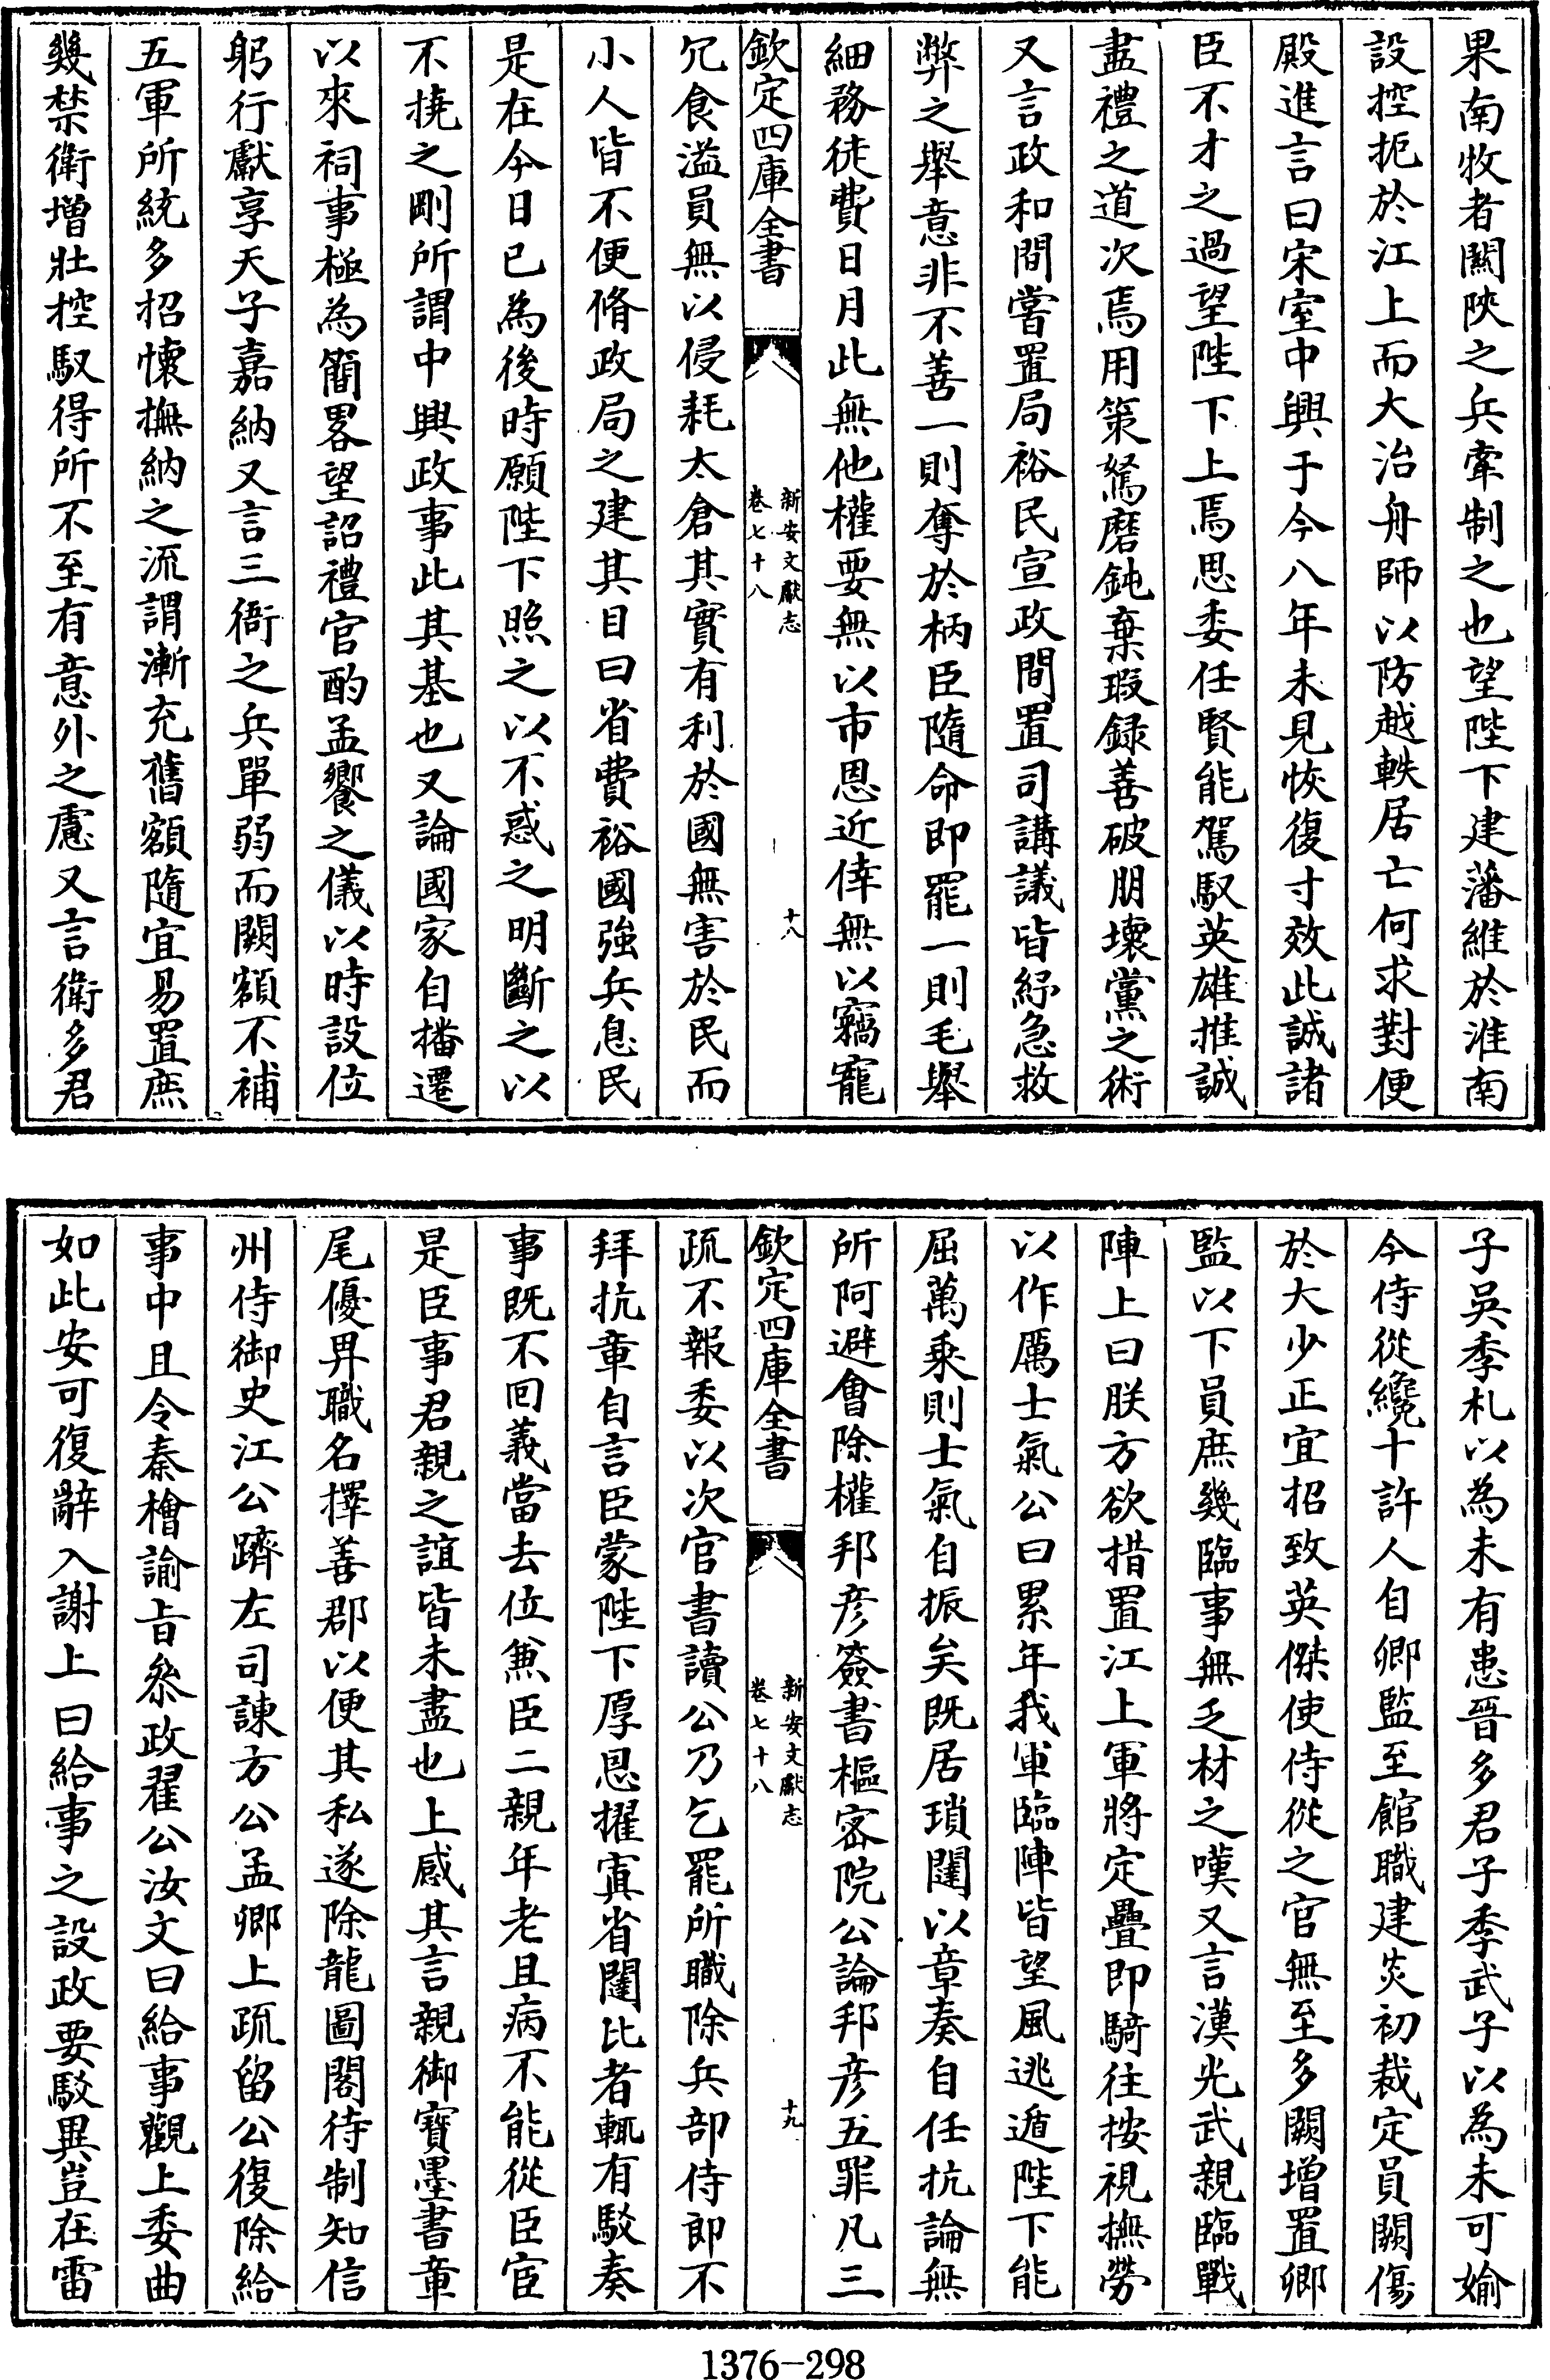 果南牧者關陜之兵牽制之也望陛下建藩維於淮南
設控扼於江上而大治舟師以防越軼居亡何求對便
殿進言曰宋室中興于今八年未見恢復寸效此誠諸
臣不才之過望陛下上焉思委任賢能駕馭英雄推誠
盡禮之道次焉用策駑磨鈍棄瑕録善破朋壞黨之術
又言政和間嘗置局裕民宣政間置司講議皆紓急救
弊之舉意非不善一則奪於柄臣隨命即罷一則毛舉
細務徒費日月此無他權要無以市恩近倖無以竊寵
欽定四庫全書
新安文獻志
卷七十八
十八
冗食溢員無以侵耗太倉其實有利於國無害於民而
小人皆不便脩政局之建其目曰省費裕國強兵息民
是在今日已為後時願陛下照之以不惑之明斷之以
不撓之剛所謂中興政事此其基也又論國家自播遷
以來祠事極為簡畧望詔禮官酌孟饗之儀以時設位
躬行獻享天子嘉納又言三衙之兵單弱而闕額不補
五軍所統多招懷撫納之流謂漸充舊額隨宜易置庶
幾禁衛增壯控馭得所不至有意外之慮又言衛多君
子吳季札以為未有患晉多君子季武子以為未可媮
今侍從纔十許人自卿監至館職建炎初裁定員闕傷
於大少正宜招致英傑使侍從之官無至多闕增置卿
監以下員庶幾臨事無乏材之嘆又言漢光武親臨戰
陣上曰朕方欲措置江上軍將定疊即騎往按視撫勞
以作厲士氣公曰累年我軍臨陣皆望風逃遁陛下能
屈萬乘則士氣自振矣既居瑣闥以章奏自任抗論無
所阿避會除權邦彦簽書樞密院公論邦彦五罪凡三
欽定四庫全書
新安文獻志
卷七十八
十九
疏不報委以次官書讀公乃乞罷所職除兵部侍郎不
拜抗章自言臣蒙陛下厚恩擢寘省闥比者輒有駁奏
事既不回義當去位兼臣二親年老且病不能從臣宦
是臣事君親之誼皆未盡也上感其言親御寶墨書章
尾優昇職名擇善郡以便其私遂除龍圖閣待制知信
州侍御史江公躋左司諫方公孟卿上疏留公復除給
事中且令秦檜諭旨叅政翟公汝文曰給事觀上委曲
如此安可復辭入謝上曰給事之設政要駁異豈在雷
1376-298